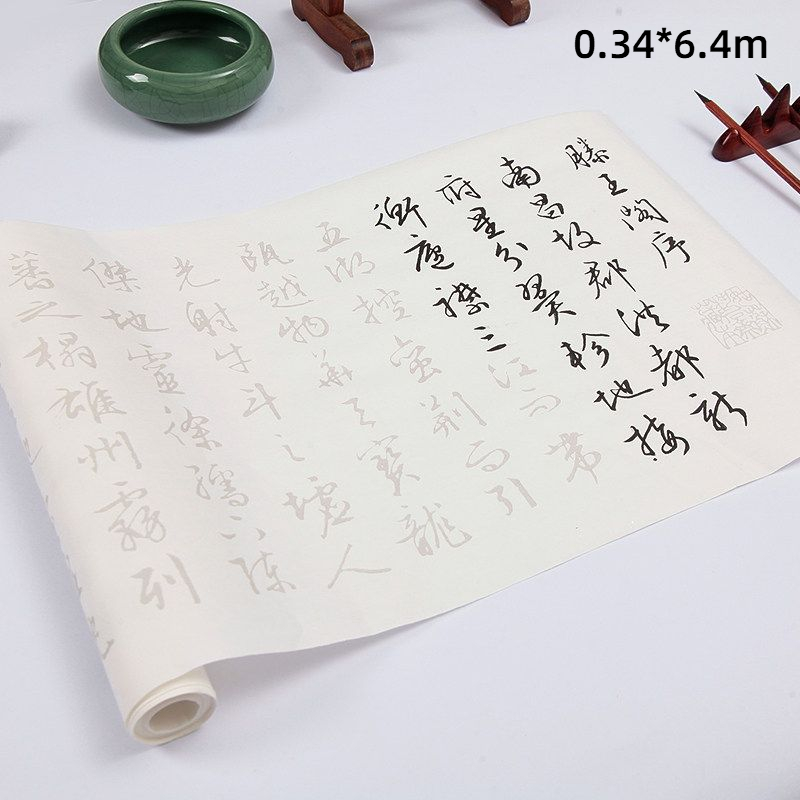 0.34*6.4m
滕王閣序
南昌故郡洪都新
府星分翼軫地接
衡廬襟三江而帶
五湖控蠻荊而引
甌越物華天寶龍
光射牛斗之墟人
傑地靈徐孺下陳
蕃之榻雄州霧列